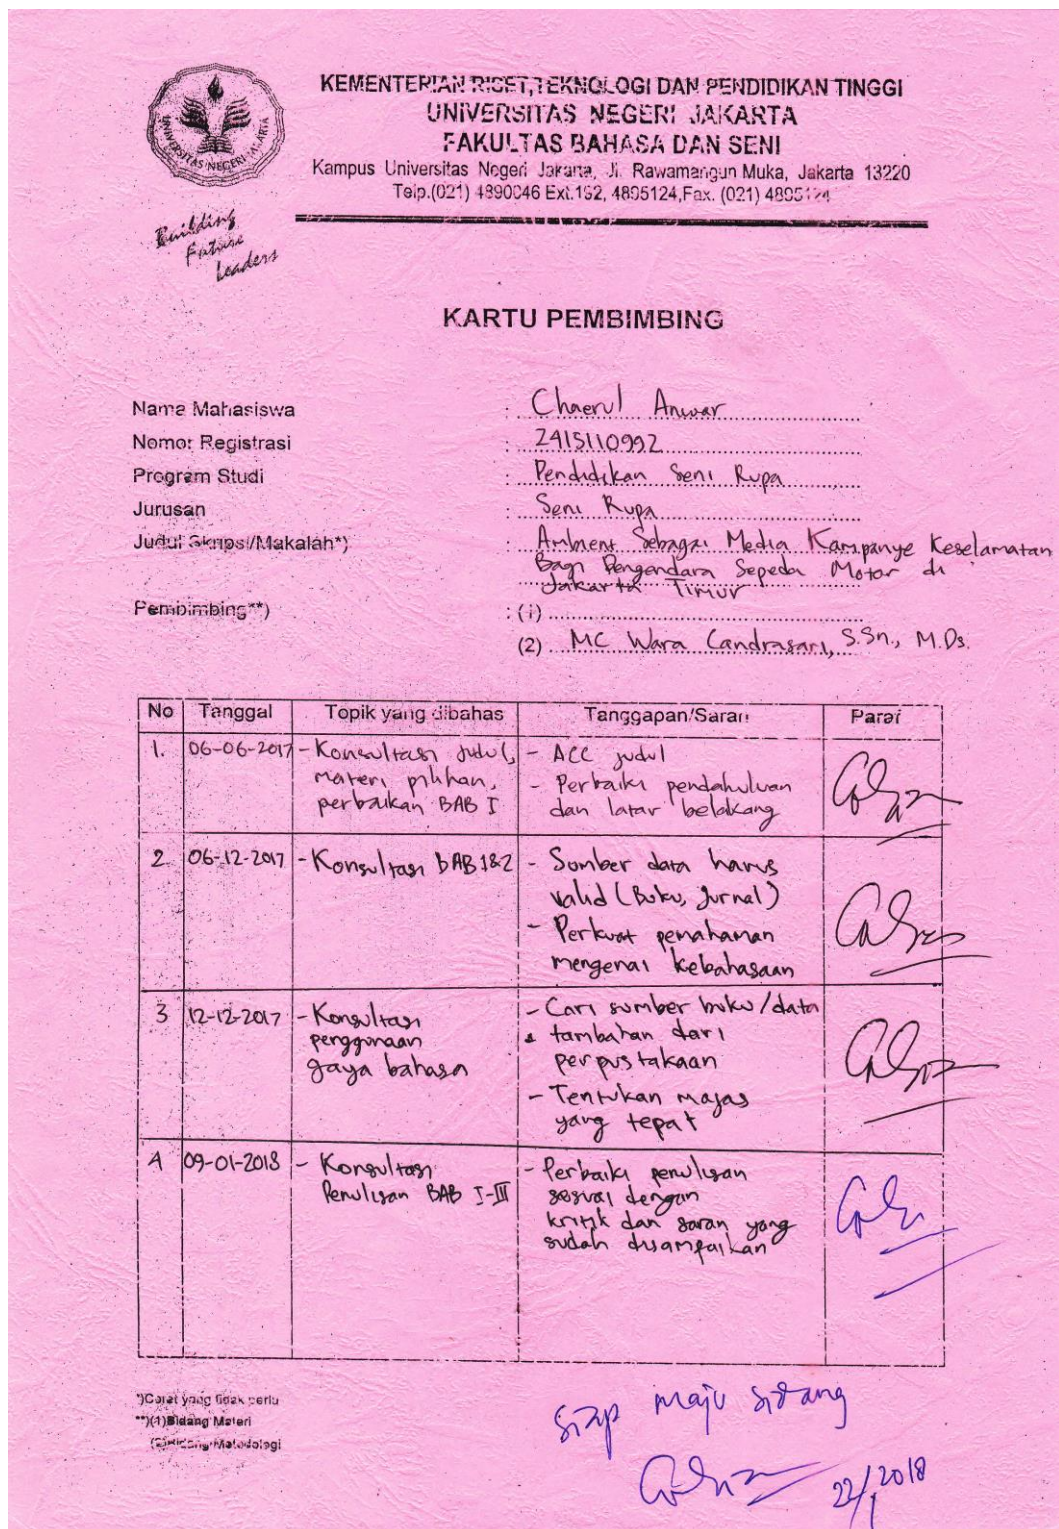 KEMENTERIAN RISET, TEKNOLOGI DAN PENDIDIKAN TINGGI
UNIVERSITAS NEGERI JAKARTA
FAKULTAS BAHASA DAN SENI
Kampus Universitas Negeri Jakarta, Jl. Rawamangun Muka, Jakarta 13220
Telp.(021) 4890046 Ext.192, 4895124,Fax. (021) 4895124
UNIVERSITAS NEGERI JAKARTA
Building
Future
Leaders
KARTU PEMBIMBING
Nama Mahasiswa : Chaerul Anwar
Nomor Registrasi : 2415110992
Program Studi : Pendidikan Seni Rupa
Jurusan : Seni Rupa
Judul Skripsi/Makalah*) : Ambient Sebagai Media Kampanye Keselamatan
Bagi Pengendara Sepeda Motor di
Jakarta Timur
Pembimbing**) : (1)
(2) MC Wara Candrasari, S.Sn., M.Ds.
No Tanggal Topik yang dibahas Tanggapan/Saran Paraf
1. 06-06-2017 - Konsultasi judul, - ACC judul
materi pilihan, - Perbaiki pendahuluan
perbaikan BAB I dan latar belakang
2. 06-12-2017 - Konsultasi BAB 1&2 - Sumber data harus
valid (Buku, Jurnal)
- Perkuat pemahaman
mengenai kebahasaan
3 12-12-2017 - Konsultasi - Cari sumber buku/data
penggunaan tambahan dari
gaya bahasa perpustakaan
- Tentukan majas
yang tepat
4 09-01-2018 - Konsultasi - Perbaiki penulisan
Penulisan BAB I-III sesuai dengan
kritik dan saran yang
sudah disampaikan
*)Coret yang tidak perlu
**)(1)Bidang Materi
(2)Bidang Metodologi
Siap maju sidang
22/1 2018